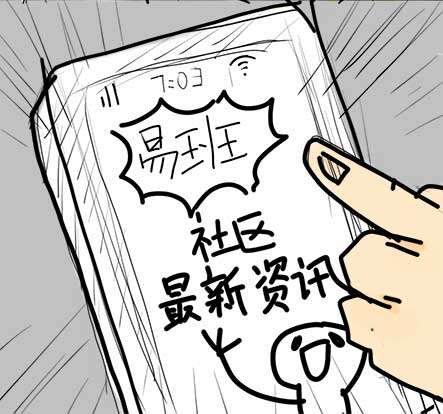 7:03
易班
社区
最新资讯